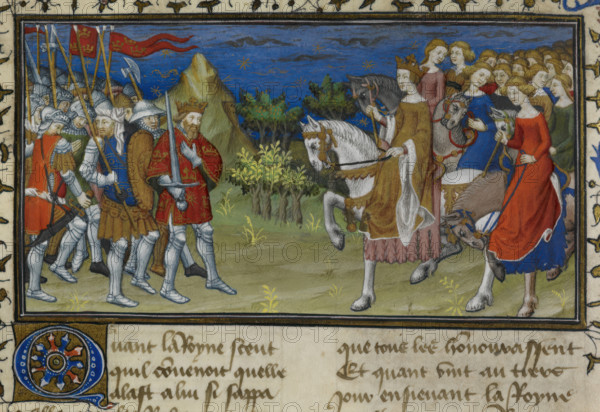 Quant la Royne sceut
quil couvenoit quelle
alast a lui si sappa
que tous lee honnourassent
Et quant vint au tiers
jour ensievant la Royne
PHOTO12